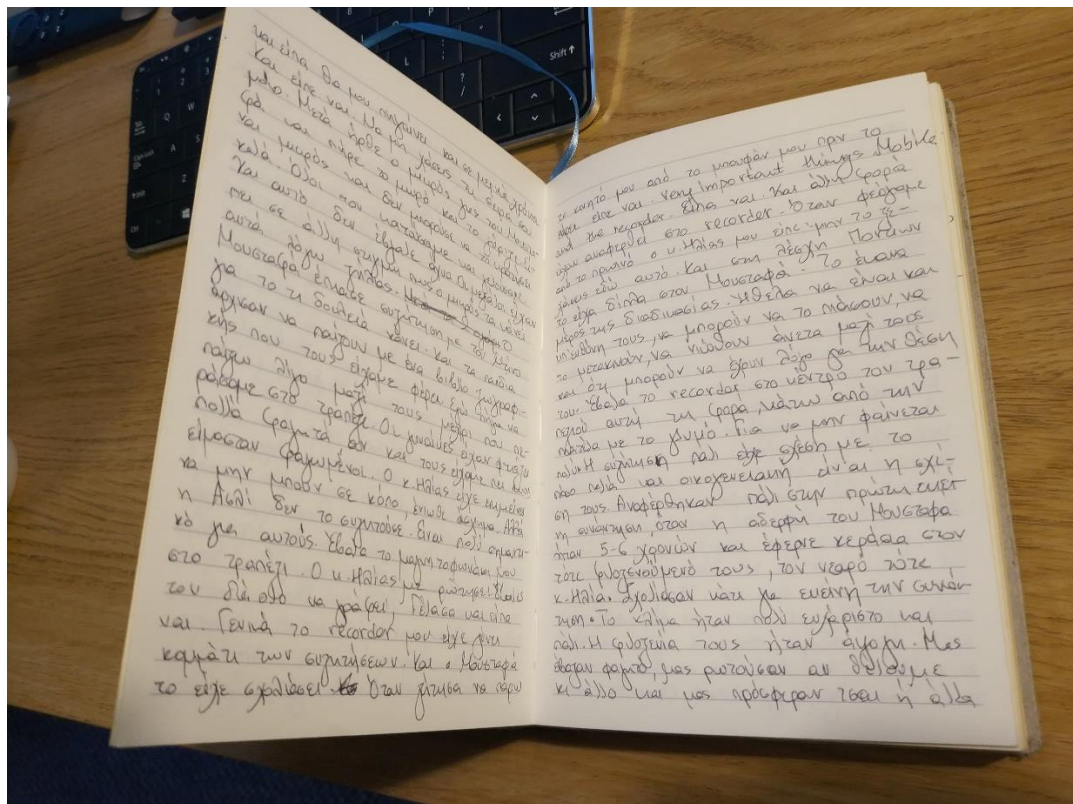 και είπα θα μου πηγαίνει και σε μεγάλη χρόνια
και είπε ναι. Να μη χάσεις τη σειρά σου
μπλο. Μετά ήρθε ο μικρός γιος του Μουστα-
φά και πήρε το μικρό και το χάρτι. Εί-
ναι μικρός και δεν μπορούσε να το προφέρει
καλά. Όλοι τον κοιτάξαμε και γελούσαμε.
Και αυτό δεν έβγαζε άχνα. Οι μεγάλοι είχαν
πει σε άλλη στιγμή πως ο μικρός τα κάνει
αυτά λόγω ζήλιας. Ο
Μουσταφά έπιασε συζήτηση με τον
για το τι δουλειά κάνει. Και τα παιδιά
άρχισαν να παίζουν με ένα βιβλίο ζωγραφι-
κής που τους είχαμε φέρει. Εγώ πήγα να
παίξω λίγο μαζί τους μέχρι που πε-
ράσαμε στο τραπέζι. Οι γυναίκες είχαν φτιάξει
πολλά φαγητά αν και τους είχαμε πει
είμασταν φαγωμένοι. Ο κ. Ηλίας είχε επιμείνει
να μην μπουν σε κόπο ένιωθε άσχημα. Αλλά
η Ασλί δεν το συζητούσε. Είναι πολύ σημαντι-
κό για αυτούς. Έβαλα το μαγνητοφωνάκι μου
στο τραπέζι. Ο κ. Ηλίας με ρώτησε:
του να γράψει; Γέλασα και είπα
ναι. Γενικά το recorder μου είχε γίνει
κομμάτι των συζητήσεων. Και ο Μουσταφά
το είχε σχολιάσει. Όταν ζήτησα να πάρω
το κινητό μου από το μπουφάν μου πριν το
πάρω είπε ναι. Very important things Mobile
and the recorder. Είπα ναι. Και άλλη φορά
είχαν αναφερθεί στο recorder. Όταν φεύγαμε
από το πρωινό ο κ. Ηλίας μου είπε "μην το ξε-
χάσεις εδώ αυτό". Και στη λέσχη Ποντίων
το είχα δίπλα στον Μουσταφά. Το έκανα
μέρος της διαδικασίας. Ήθελα να είναι και
υπ' ευθύνη τους, να μπορούν να το πιάσουν, να
το μετακινούν, να νιώθουν άνετα μαζί τους
και ότι μπορούν να έχουν λόγο για την θέση
του. Έβαλα το recorder στο κέντρο του τρα-
πεζιού αυτή τη φορά, κάτω από την
πιατέλα με το χυμό. Για να μην φαίνεται
πολύ. Η συζήτηση πάλι είχε σχέση με το
πόσο παλιά και οικογενειακή είναι η σχέ-
ση τους. Αναφέρθηκαν πάλι στην πρώτη τους
η συνάντηση, όταν η αδερφή του Μουσταφά
ήταν 5-6 χρονών και έφερνε κεράσια στον
τότε φιλοξενούμενό τους, τον νεαρό τότε
κ. Ηλία. Σχολίασαν κάτι για εκείνη την συνάν-
τηση. Το κλίμα ήταν πολύ ευχάριστο και
πάλι. Η φιλοξενία τους ήταν άψογη. Μας
έβαζαν φαγητό, μας ρωτούσαν αν θέλουμε
κι άλλο και μας πρόσφεραν τσάι ή άλλα